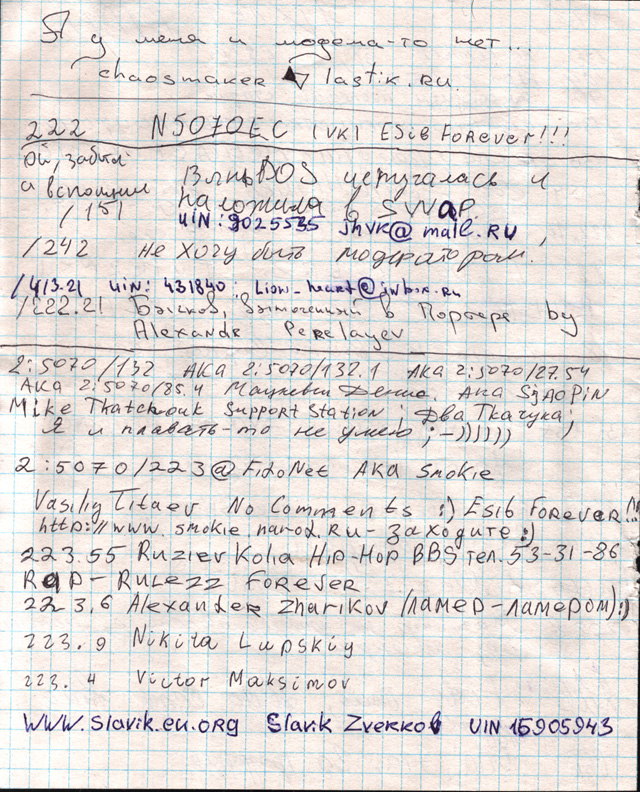 Я у меня и модема-то нет...
chaosmaker lastik.ru.
222 N5070EC (VK) ESib Forever!!!
Ой, забыл а вспомнил /151
DOS испугалась и
наложила в SWaP.
UIN: 9025535 jhvk@mail.RU,
/242 не хочу быть модератором.
/413.21 UIN: 431840; Lion_heart@inbox.ru
/222.21 Бычков, в Портере by
Alexandr Perelayev
2:5070/132 AKA 2:5070/132.1 AKA 2:5070/27.54
AKA 2:5070/85.4 Мацкевич Денис. AKA
Mike Thatchouk Support Station; Два Ткачука;
Я и плавать-то не умею ;-))))))
2:5070/223@FidoNet AKA Smokie
Vasiliy Titaev No Comments :) Esib Forever!!!
http://www.smokie.narod.Ru - Заходите :)
223.55 Ruziev Kolia Hip-Hop BBS тел. 53-31-86
Rap-Rulezz Forever
223.6 Alexander Zharikov (ламер-ламером):)
223.9 Nikita Lupskiy
223.4 Victor Maksimov
WWW.Slavik.eu.org Slavik Zverkov UIN 15905943